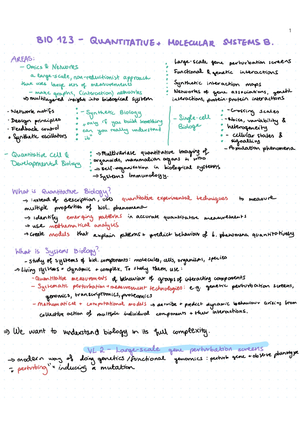 1
BIO 123 - QUANTITATIVE + MOLECULAR SYSTEMS B.
AREAS:
- Omics & Networks
a large-scale, non-reductionist approach
that use large sets of measurements
- make graphs, (interaction) networks
→ multilayered insight into biological system
- Large-scale gene perturbation screens
- Functional & genetic interactions
- Synthetic interaction maps
- Networks of gene associations, genetic
interaction, protein-protein interactions
- Network motifs
- Design principles
- Feedback control
+ Synthetic oscillators
- Synthetic Biology
→ only if you build something
can you really understand
it"
- Single-cell
Biology
- Crossing scales
- Noise, variability &
heterogeneity
- cellular states &
signalling
- population phenomena
- Quantitative Cell &
Developmental Biology
→ Multivariate quantitative imaging of
organoids, mammalian organs in vitro
→ Self-organisation in biological systems
→ Systems Immunology
What is Quantitative Biology?
→ instead of description, uses quantitative experimental techniques to measure
multiple properties of biol. phenomena
→ identify emerging patterns in accurate quantitative measurements
→ use mathematical analysis
→ create models that explain patterns + predict behavior of b. phenomena quantitatively
What is Systems Biology?
- study of systems of biol. components: molecules, cells, organisms, species
→ Living systems = dynamic + complex. To study them use:
- Quantitative measurements of behavior of groups of interacting components
- Systematic perturbation + measurement technologies: e.g. genetic perturbation screens,
genomics, transcriptomics, proteomics
- Mathematical + computational models to describe + predict dynamic behaviour arising from
collective action of multiple individual components + their interactions.
⇒ We want to understand biology in its full complexity.
VL 2 - Large-scale gene perturbation screens
→ modern way of doing genetics / functional genomics : perturb gene + observe phenotype
"perturbing" = inducing a mutation